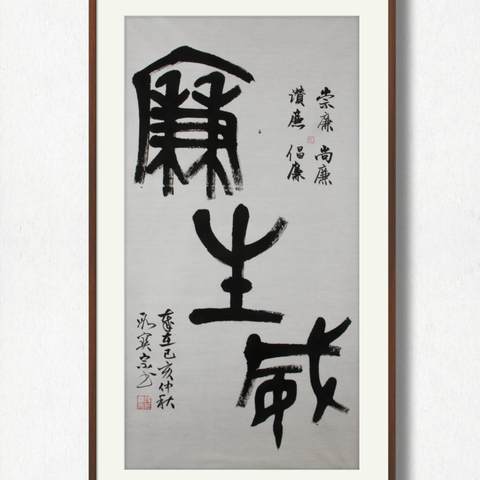 崇廉 尚廉
讚廉 倡廉
廉生威
歲在己亥仲秋